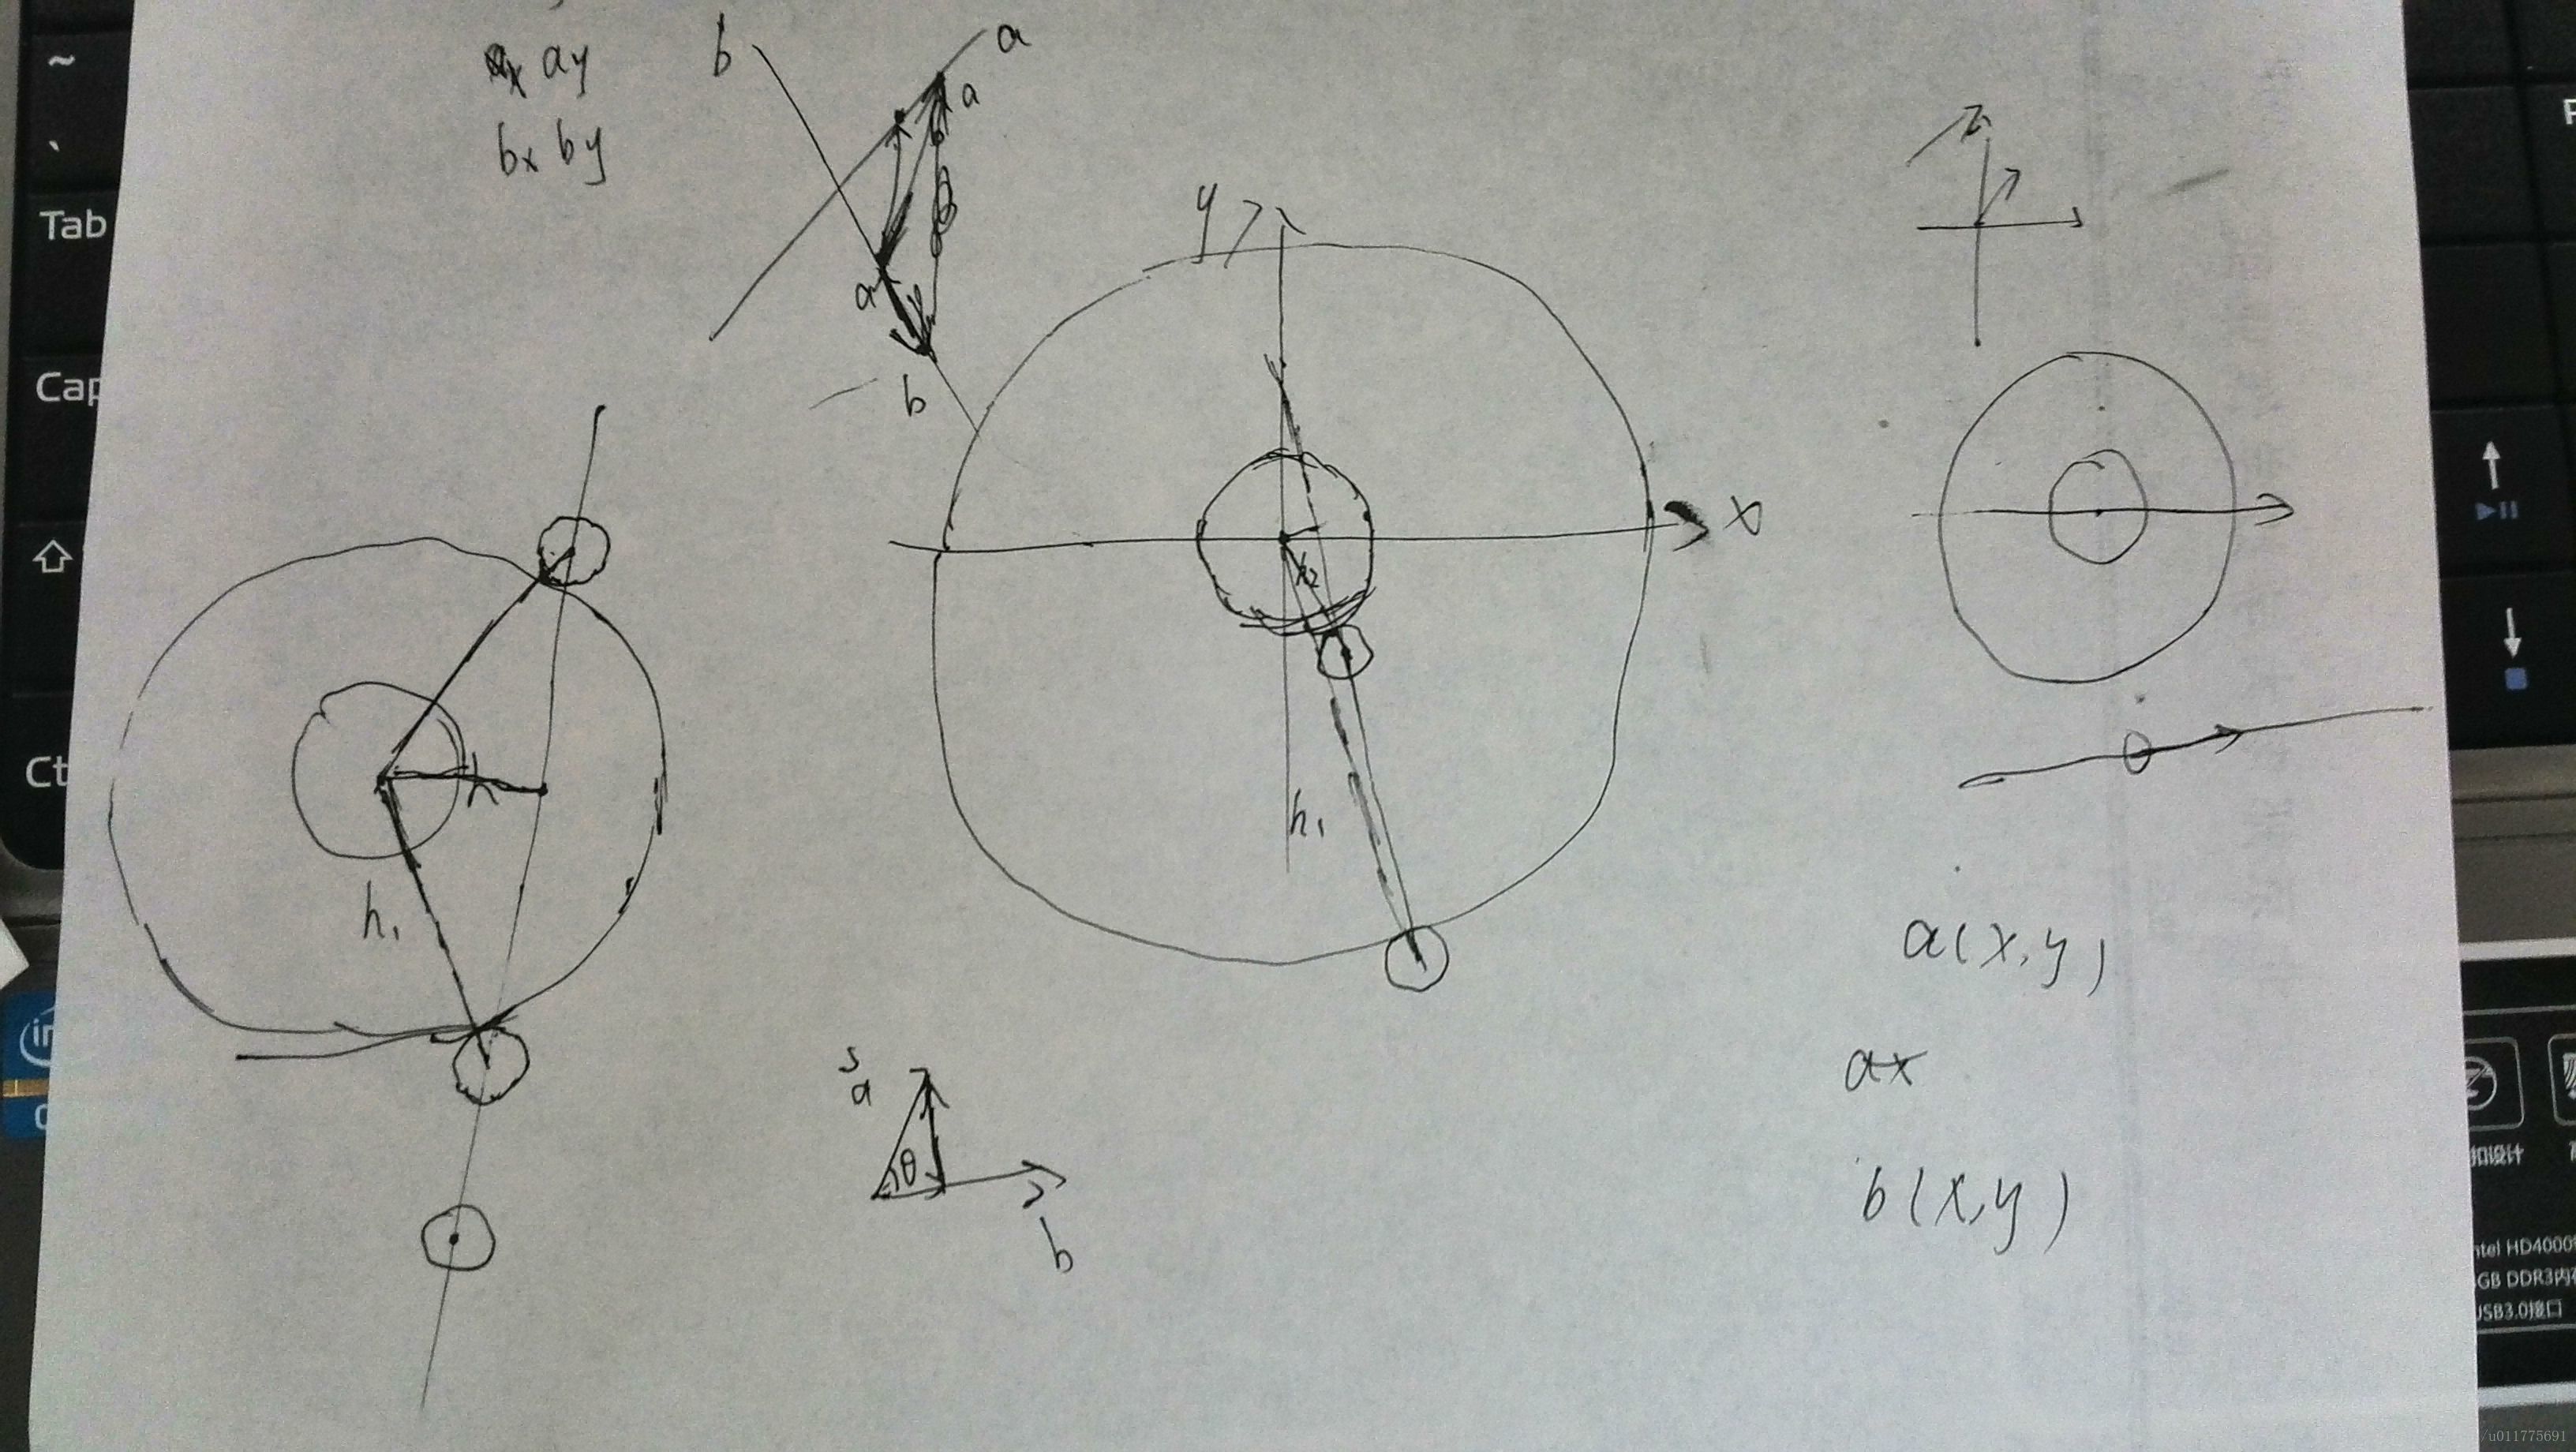 ax ay
bx by
b
a
a
θ
a
b
y
x
h2
h1
h
h1
s
a
θ
b
a(x,y)
ax
b(x,y)
~
`
Tab
Cap
Ct
in
扣设计
ntel HD4000
GB DDR3内
USB3.0接口
/u011775691